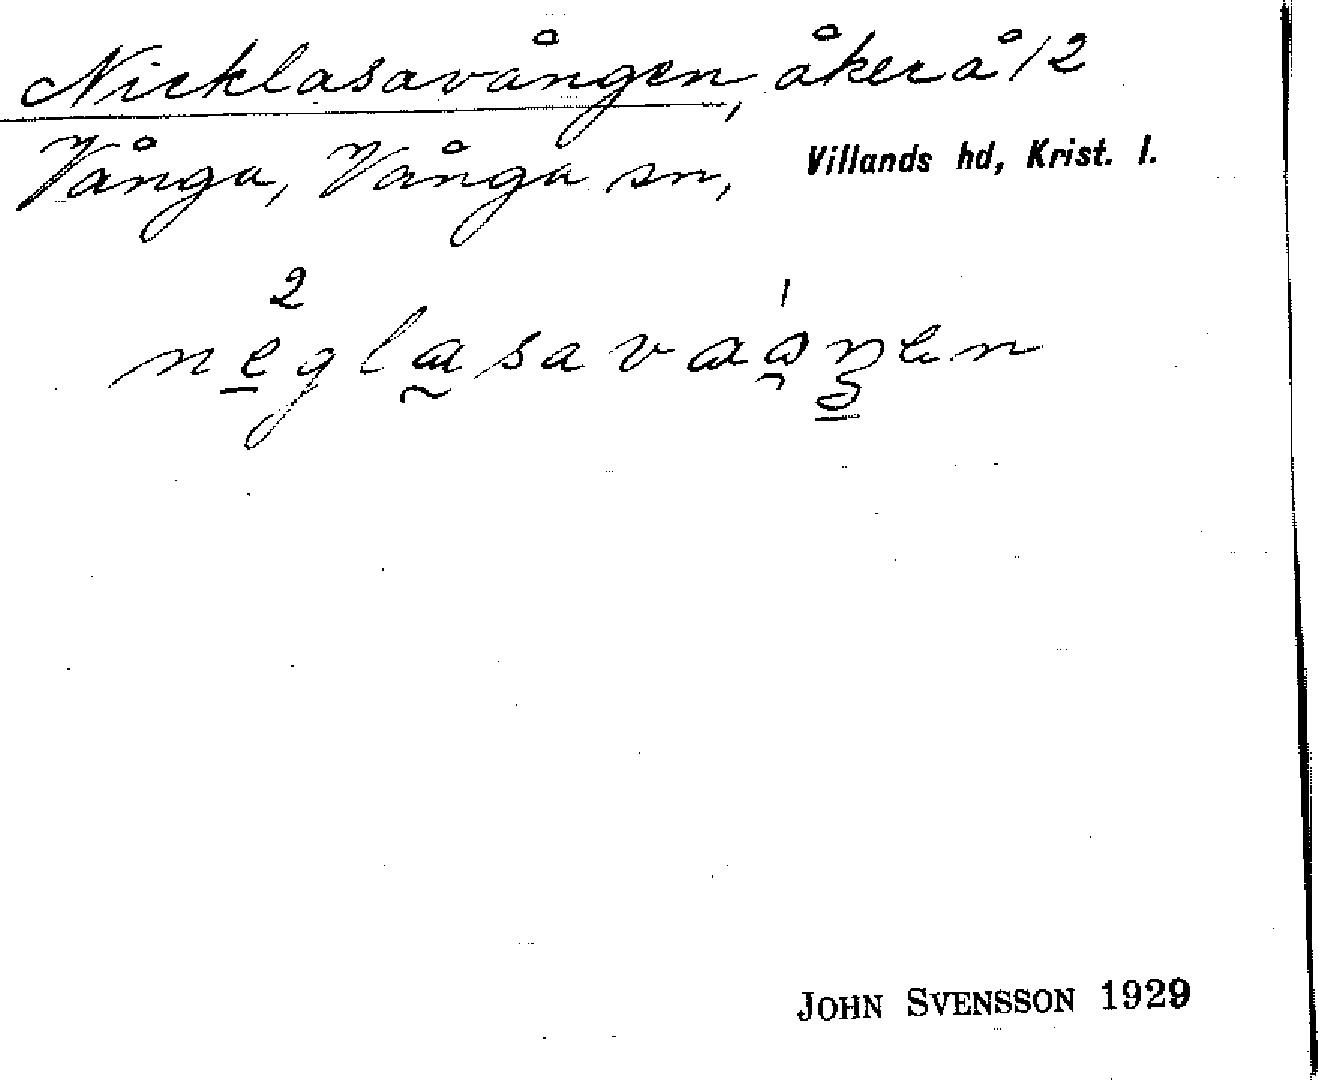 Nicklasavången, åker å 12
Vånga, Vånga sn, Villands hd, Krist. l.
neglasavaåŋen
John Svensson 1929